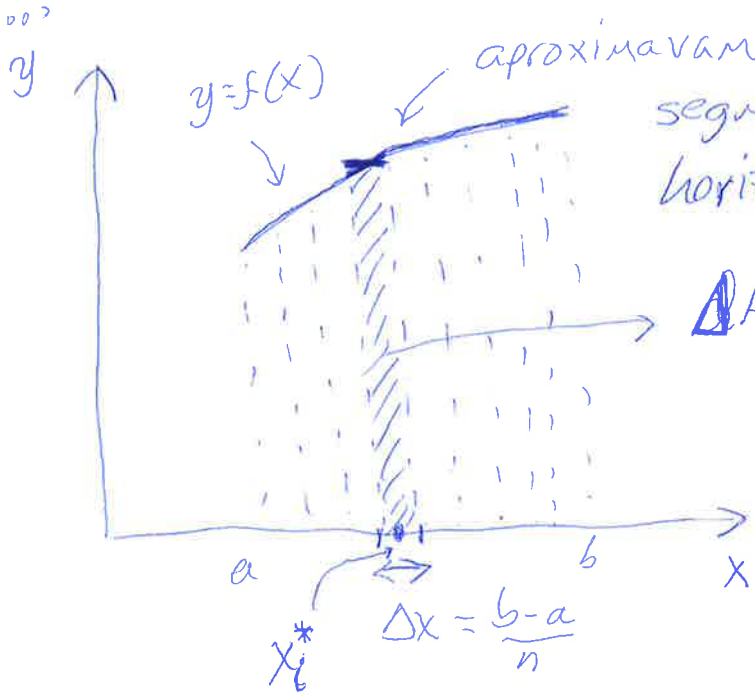 y
y=f(x)
aproximavam
segm
horiz
ΔA
a
b
x
x_i^*
Δx = \frac{b-a}{n}